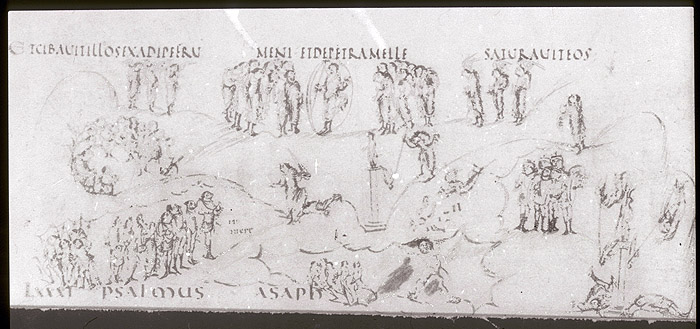 ETCIBAUITILLOSEXADIPEFRU MENTI ETDEPETRAMELLE SATURAUITEOS
LXXXI PSALMUS ASAPH